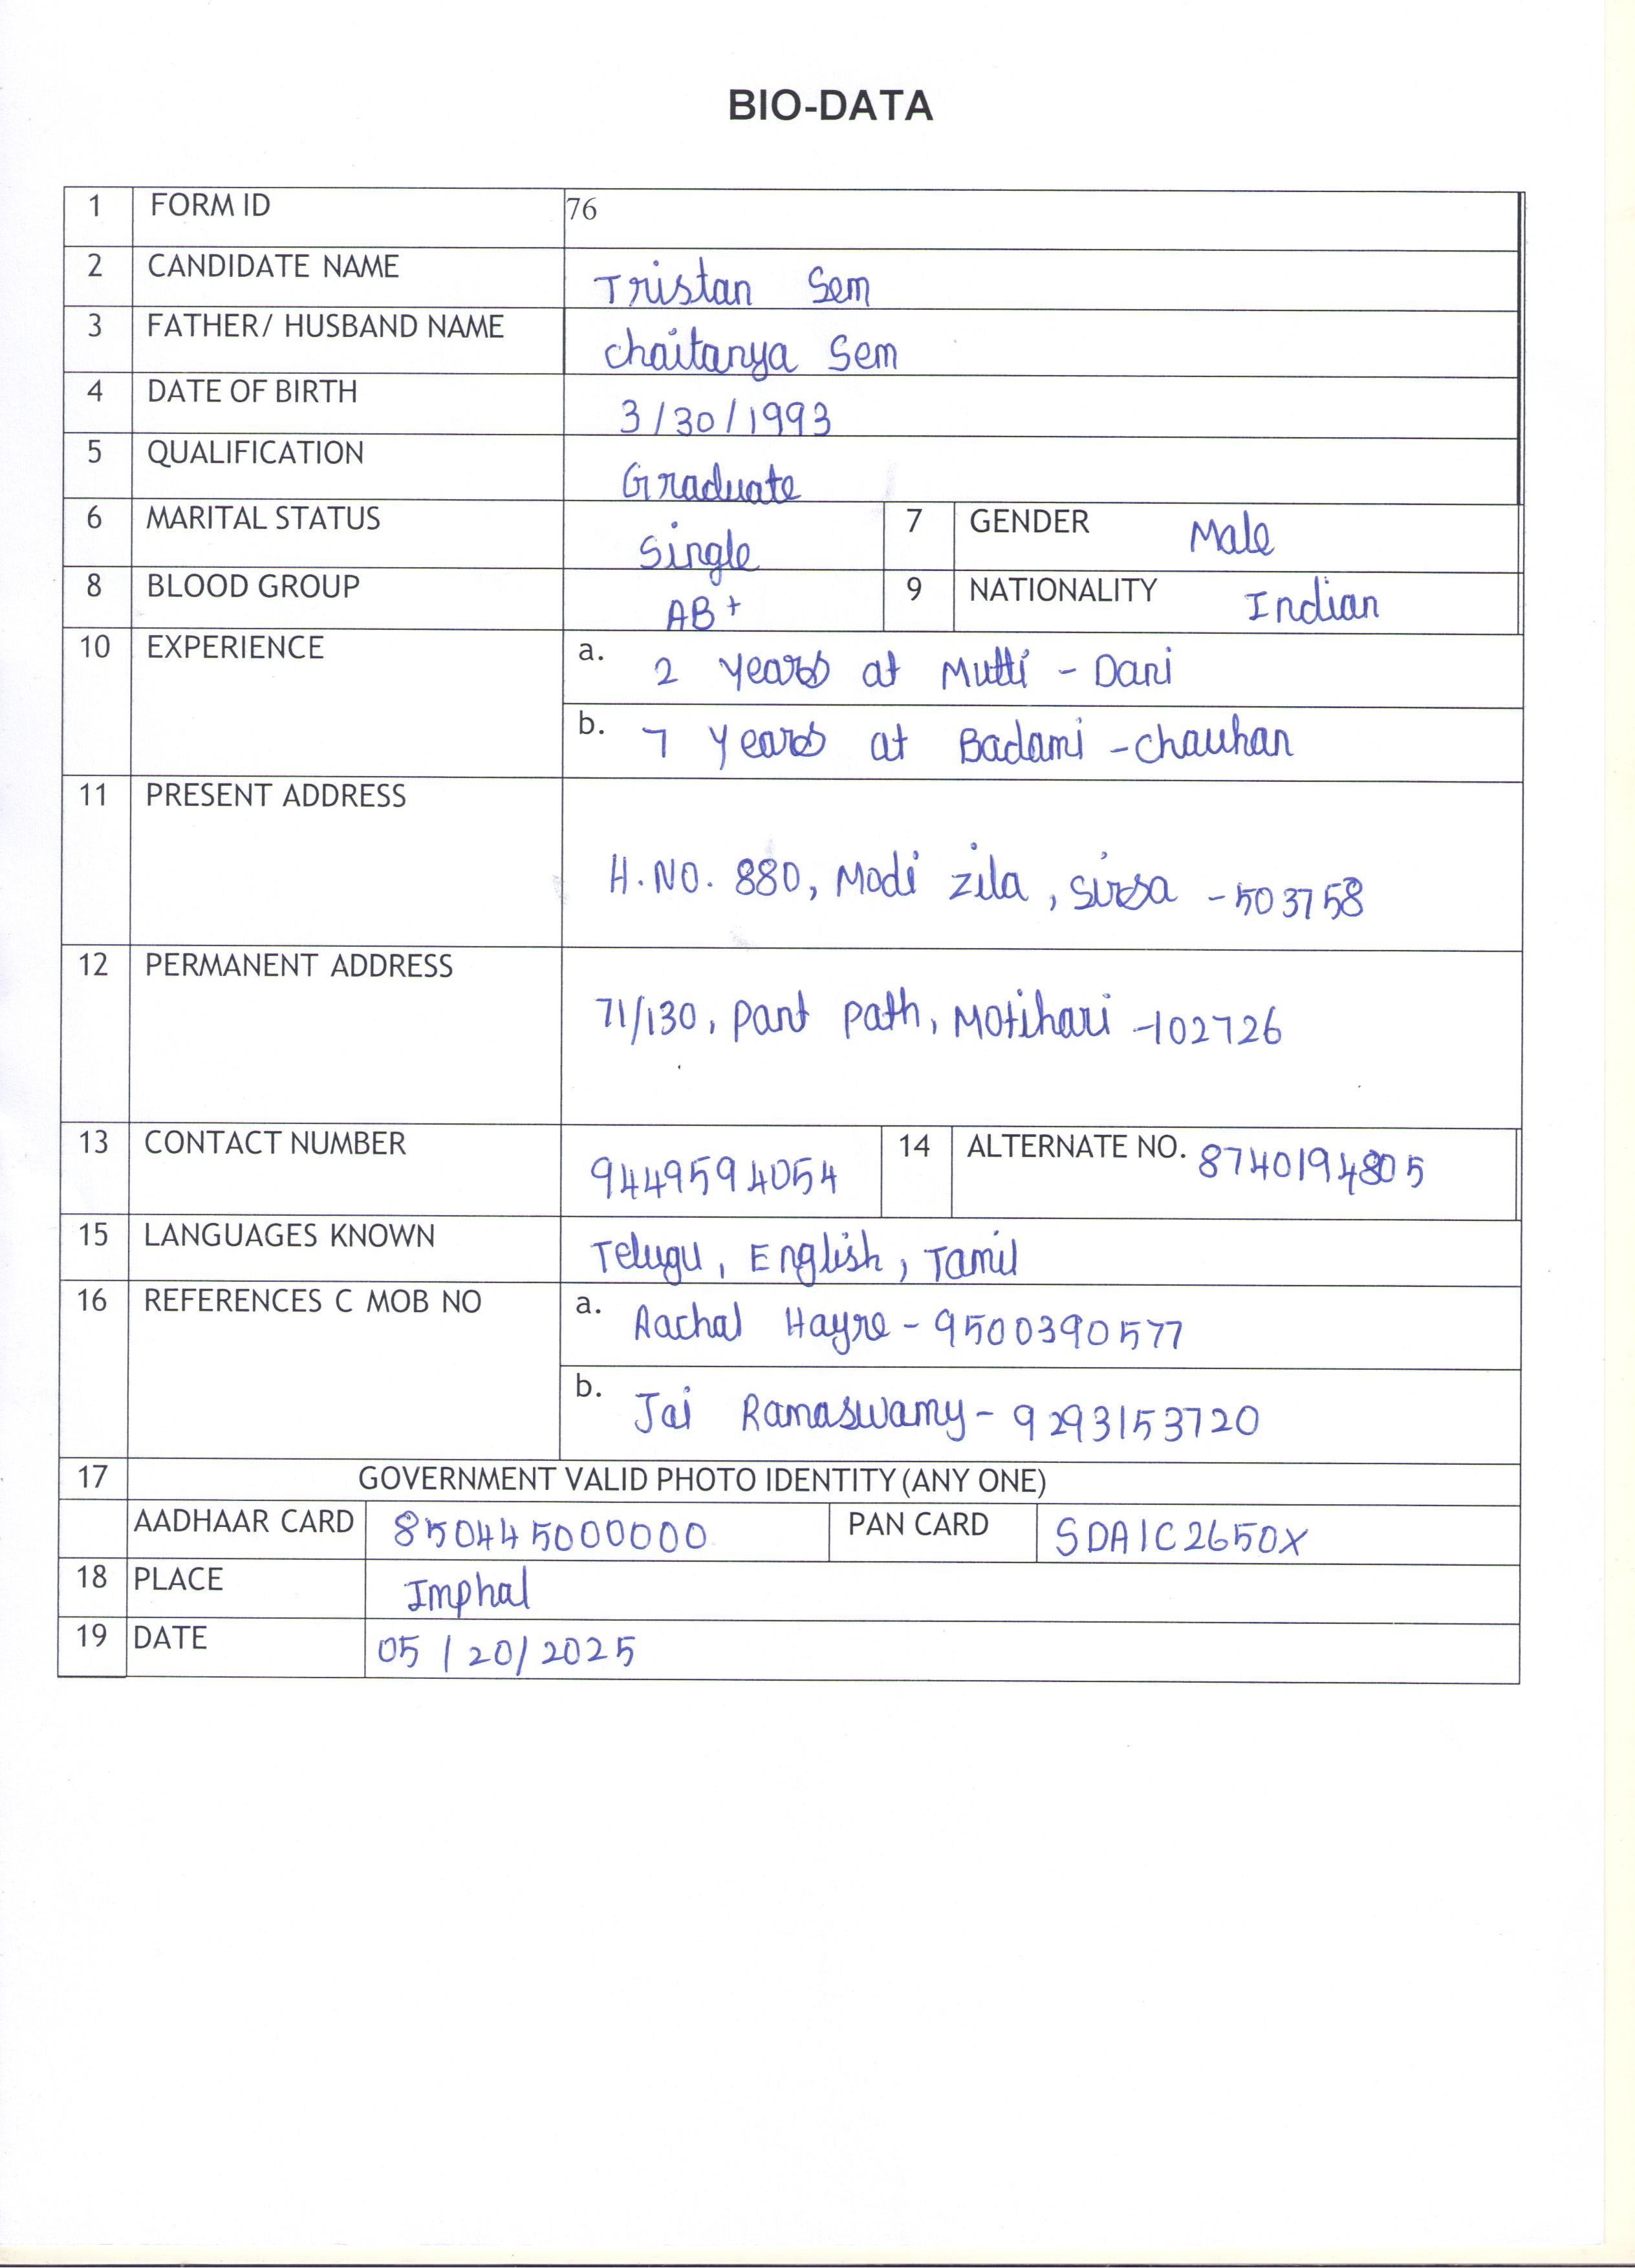 BIO-DATA
1 FORM ID 76
2 CANDIDATE NAME Tristan Sem
3 FATHER/ HUSBAND NAME Chaitanya Sem
4 DATE OF BIRTH 3/30/1993
5 QUALIFICATION Graduate
6 MARITAL STATUS Single 7 GENDER Male
8 BLOOD GROUP AB+ 9 NATIONALITY Indian
10 EXPERIENCE a. 2 years at Mutti - Dani
b. 7 years at Badami - Chauhan
11 PRESENT ADDRESS
H.NO. 880, Modi Zila, Sirsa - 503758
12 PERMANENT ADDRESS
71/130, Pant Path, Motihari - 102726
13 CONTACT NUMBER 9449594054 14 ALTERNATE NO. 8740194805
15 LANGUAGES KNOWN Telugu, English, Tamil
16 REFERENCES C MOB NO a. Aachal Hayre - 9500390577
b. Jai Ramaswamy - 9293153720
17 GOVERNMENT VALID PHOTO IDENTITY (ANY ONE)
AADHAAR CARD 850445000000 PAN CARD SDAIC2650X
18 PLACE Imphal
19 DATE 05/20/2025